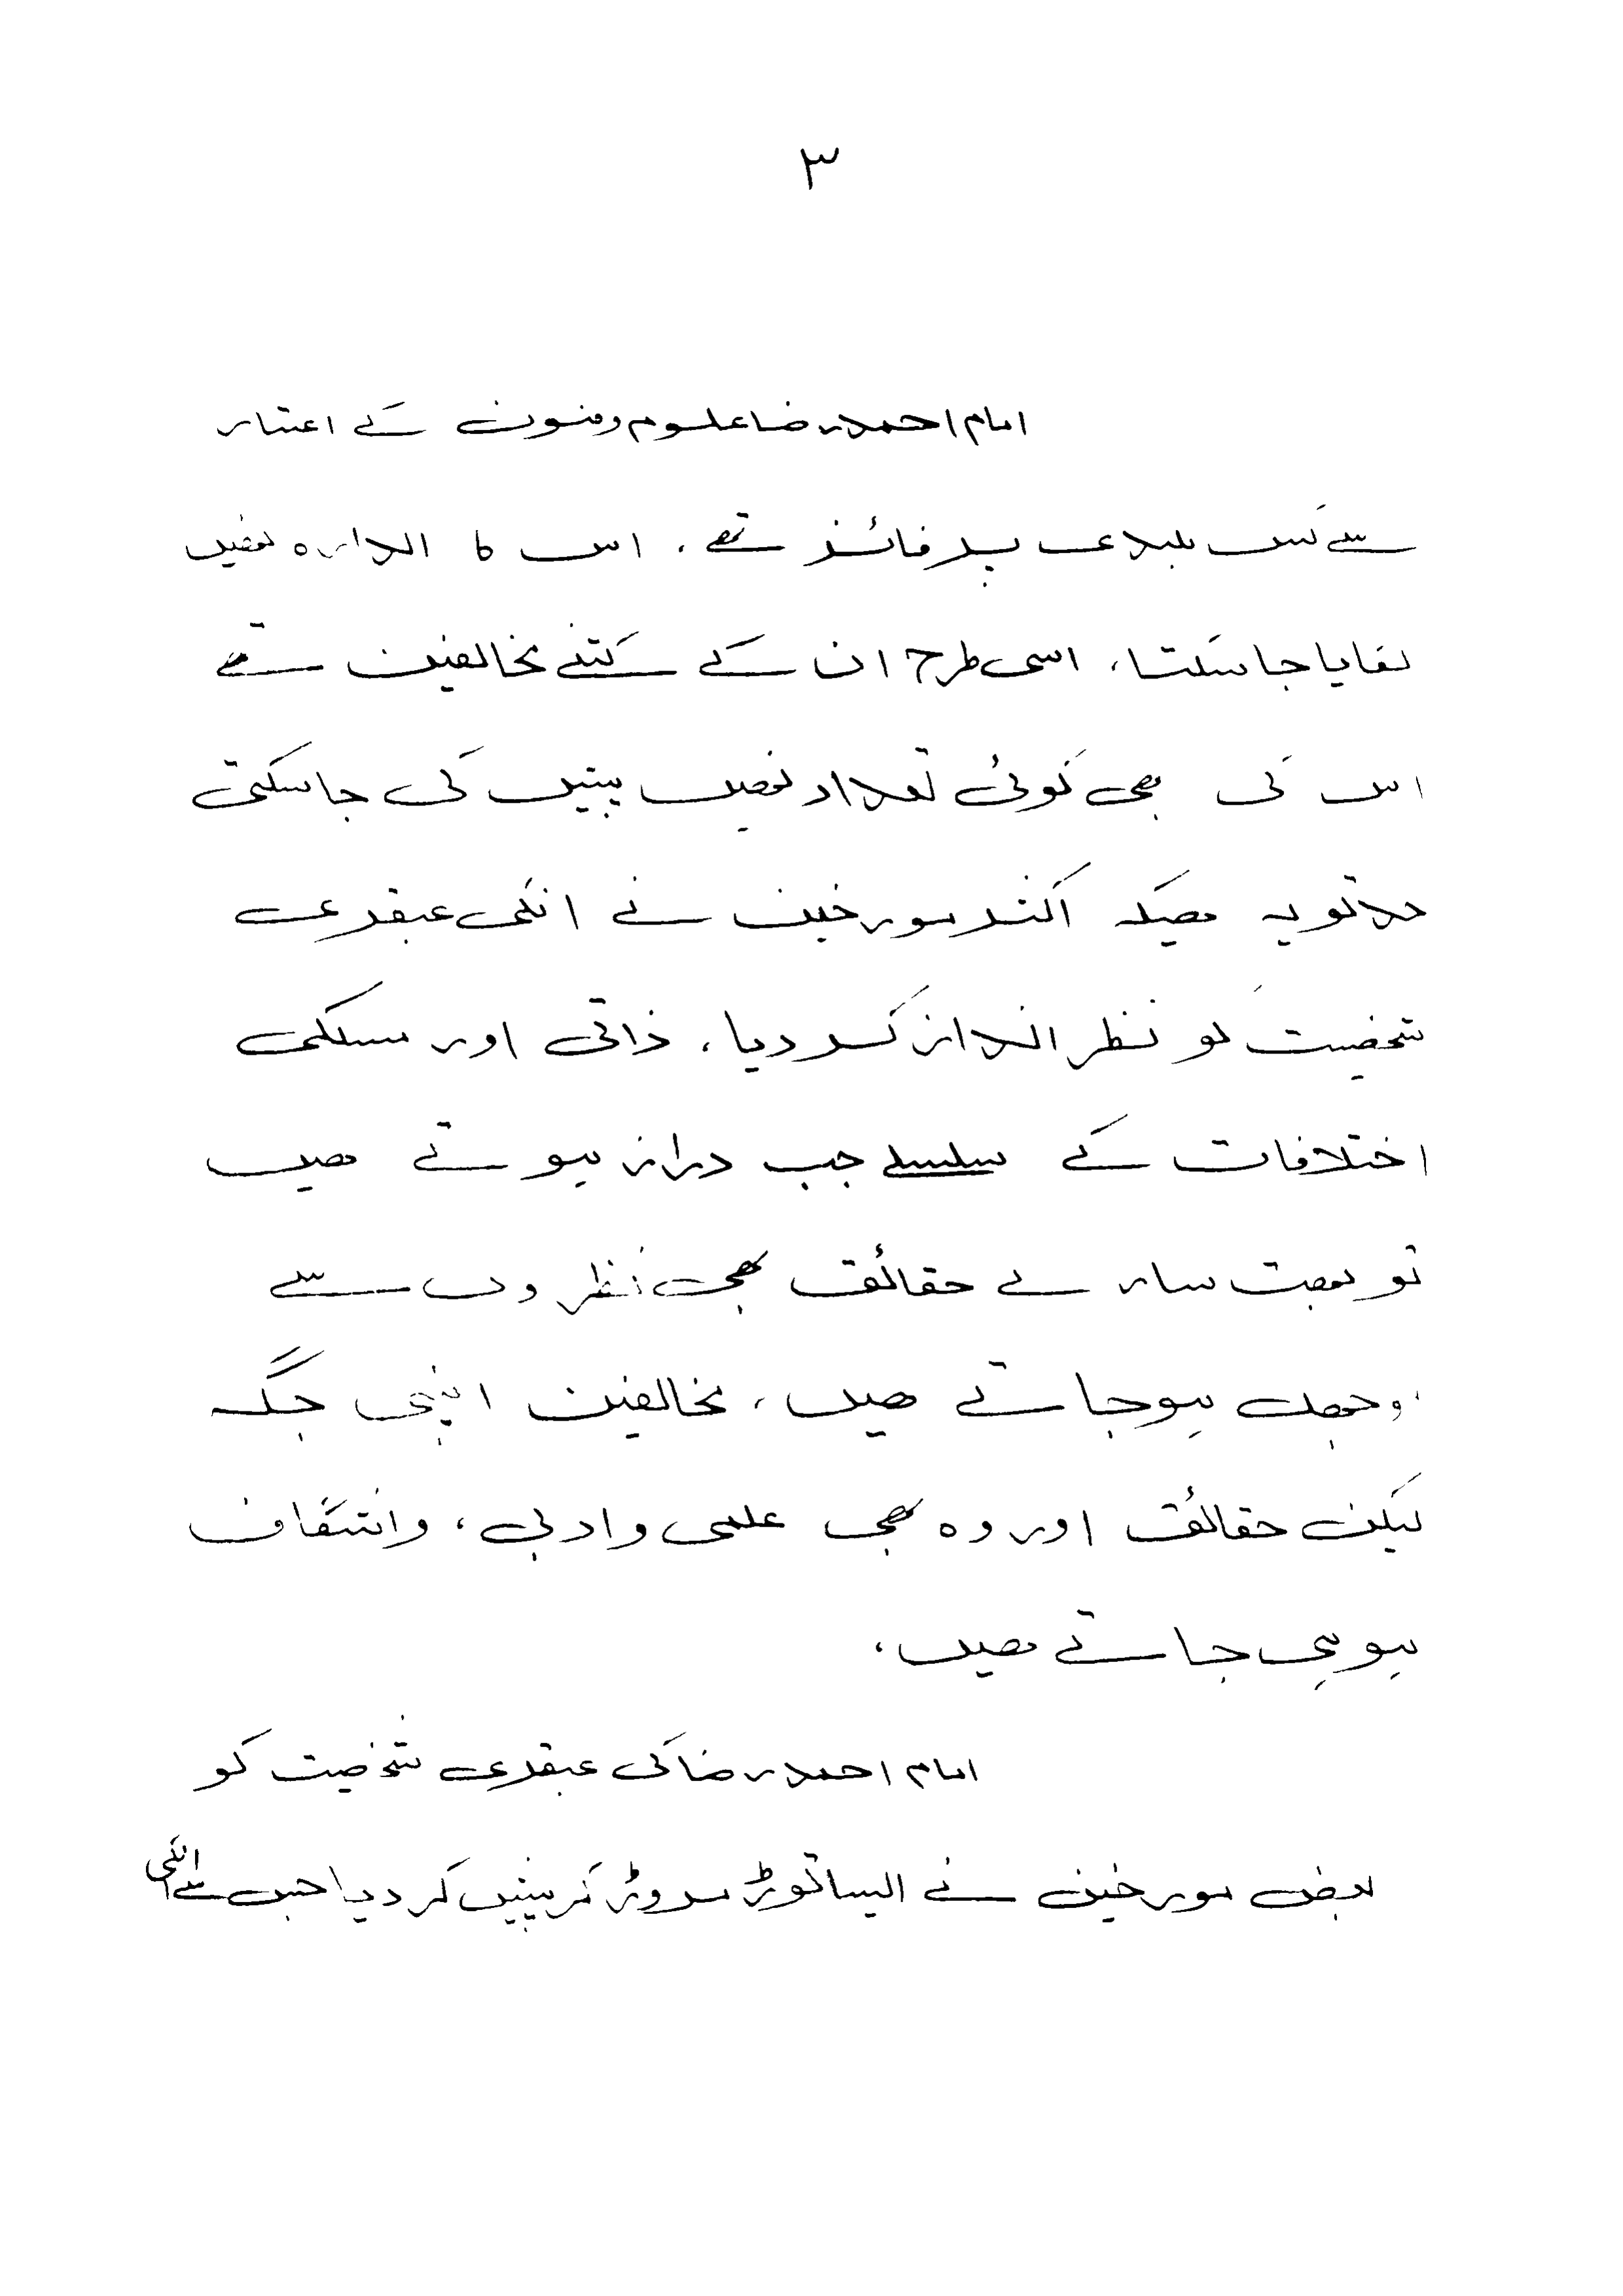 ۳
امام احمد رضا علوم وفنون کے اعتبار
سے کس بلندی پر فائز تھے، اس کا اندازہ نھیں
لگایا جا سکتا، اسی طرح ان کے کتنے مخالفین تھے
اس کی بھی کوئی تعداد نھیں پیش کی جا سکتی
حد تو یہ ھیکہ اکثر مورخین نے انکی عبقری
شخصیت کو نظر انداز کر دیا، ذاتی اور مسلکی
اختلافات کے سلسلے جب دراز ہوتے ھیں
تو بھت سارے حقائق بھی نظروں سے
اوجھل ہو جاتے ھیں، مخالفین اپنی جگہ
لیکن حقائق اور وہ بھی علمی وادبی، وانشگاف
ہو ہی جاتے ھیں،
امام احمد رضا کی عبقری شخصیت کو
بعض مورخین نے ایسا توڑ مروڑ کر پیش کر دیا جس سے انکی